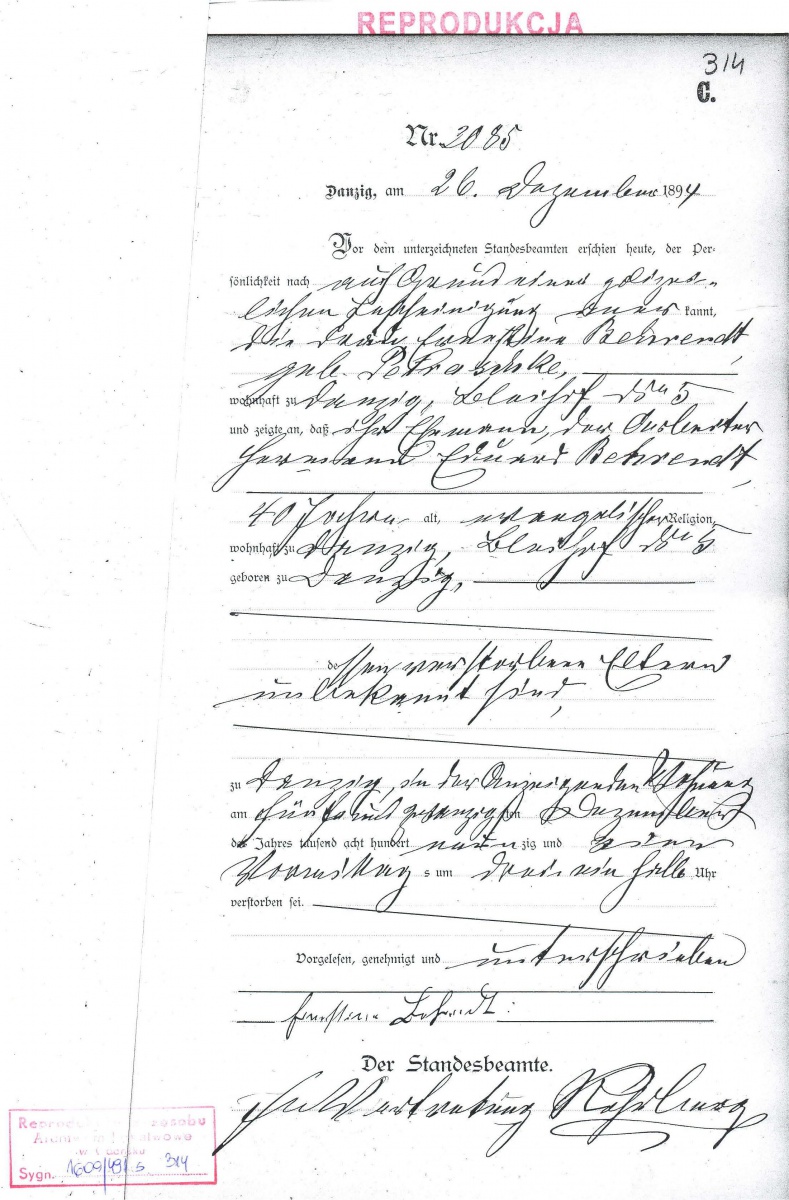 REPRODUKCJA
314
C.
Nr. 2085
Danzig, am 26. Dezember 1894
Vor dem unterzeichneten Standesbeamten erschien heute, der Per-
sönlichkeit nach auf Grund einer polizei-
lichen Bescheinigung aner kannt,
die Frau Ernestine Behrendt,
geb. Petraschke,
wohnhaft zu Danzig, Bleihof No 5
und zeigte an, daß ihr Ehemann, der Arbeiter
Hermann Eduard Behrendt,
40 Jahre alt, evangelischer Religion,
wohnhaft zu Danzig, Bleihof No 5
geboren zu Danzig,
dessen verstorbene Eltern
unbekannt sind,
zu Danzig, in der Anzeigenden Wohnung
am fünfundzwanzigsten Dezember
des Jahres tausend acht hundert neunzig und vier
Vormittags um drei ein halb Uhr
verstorben sei.
Vorgelesen, genehmigt und unterschrieben
Ernstine Behrendt.
Der Standesbeamte.
In Vertretung
Archiwum Państwowe
Sygn. 1609/491 s 314